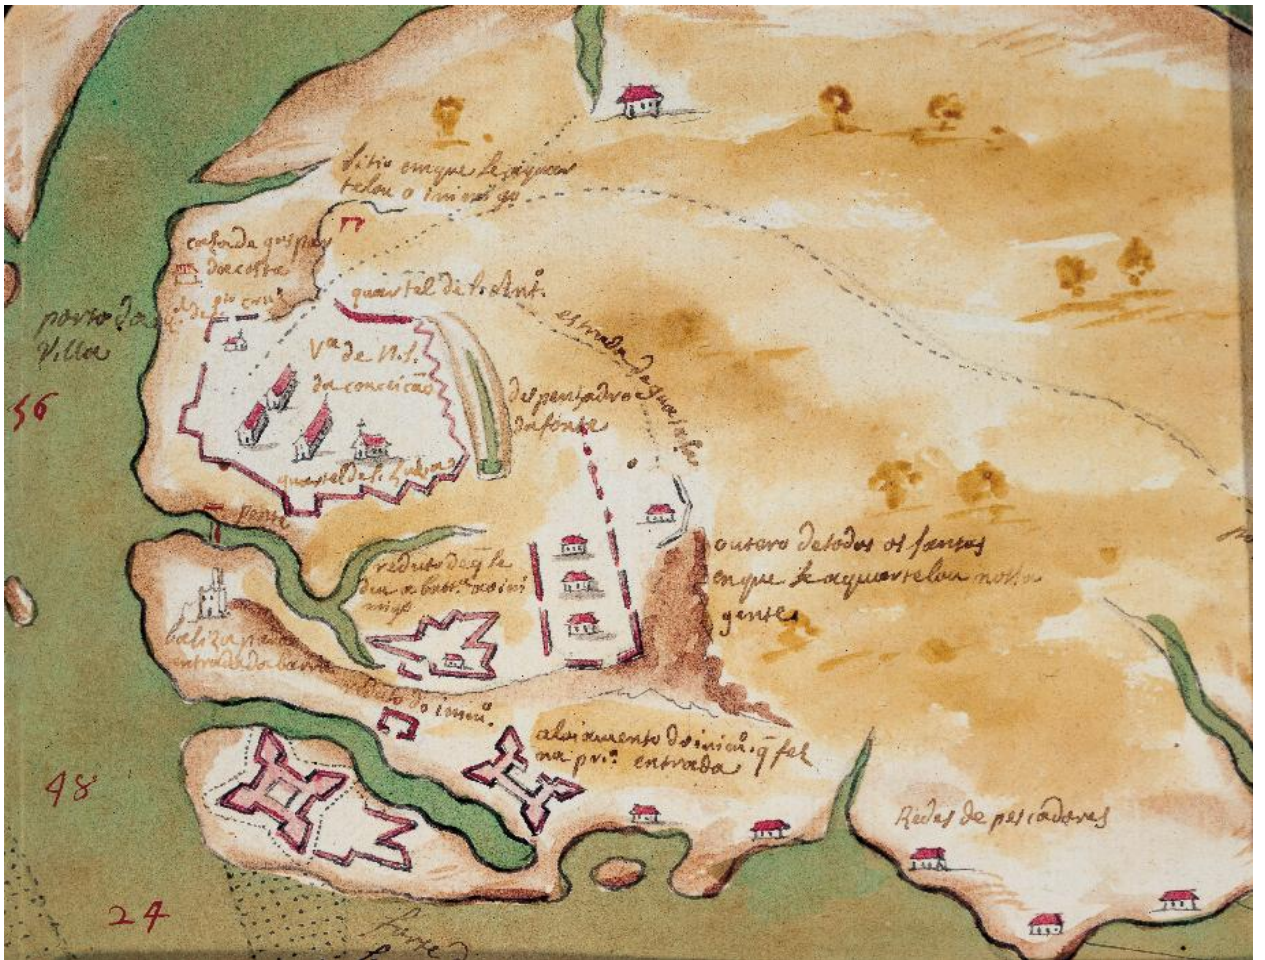 sitio emque se aquar
telou o inimigo
casa de gaspar
dacosta
quartel de S. Antº.
porto da
Villa
Vª de N. S.
da conceicão
estrada de
despenhadro
da fonte
56
quartel de S.
ponte
reducto de q̃ se
dia a batrª. ao ini
migo
outero de todos os santos
em que se aquartelou nossa
gente
baliza para
entrada da barra
do inimº.
aloiamento do inimº. q̃ fes
na prª. entrada
48
Redes de pescadores
24